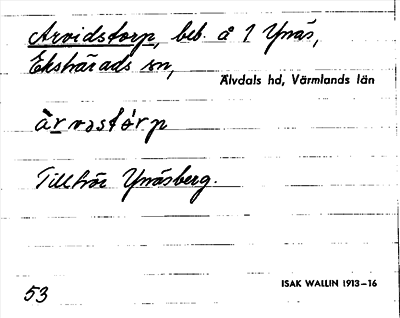 Arvidstorp, beb. å 1 Ynäs,
Ekshärads sn,
Älvdals hd, Värmlands län
Tillhör Ynäsberg.
ISAK WALLIN 1913–16
53